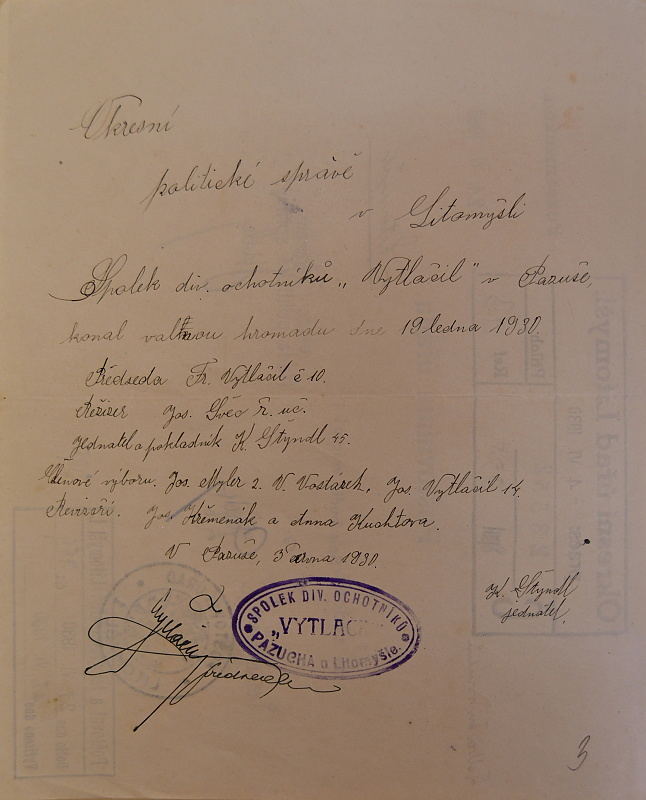 Okresní
politické správě
v Litomyšli
Spolek div. ochotníků „Vytlačil" v Pazuše,
konal valnou hromadu dne 19 ledna 1930.
Předseda Fr. Vytlačil č 10.
Režizer Jos. Švéc ř. uč.
Jednatel a pokladník K. Štýndl 45.
Členové výboru. Jos. Myler 2. V. Vostárek, Jos. Vytlačil 14.
Revizoři. Jos. Křemenák a Anna Kuchtova.
V Pazuše, 3 února 1930.
K. Štýndl
jednatel.
SPOLEK DIV. OCHOTNÍKŮ
„VYTLAČ
PAZUCHA u Litomyšle.
Vytlačil
předseda
3